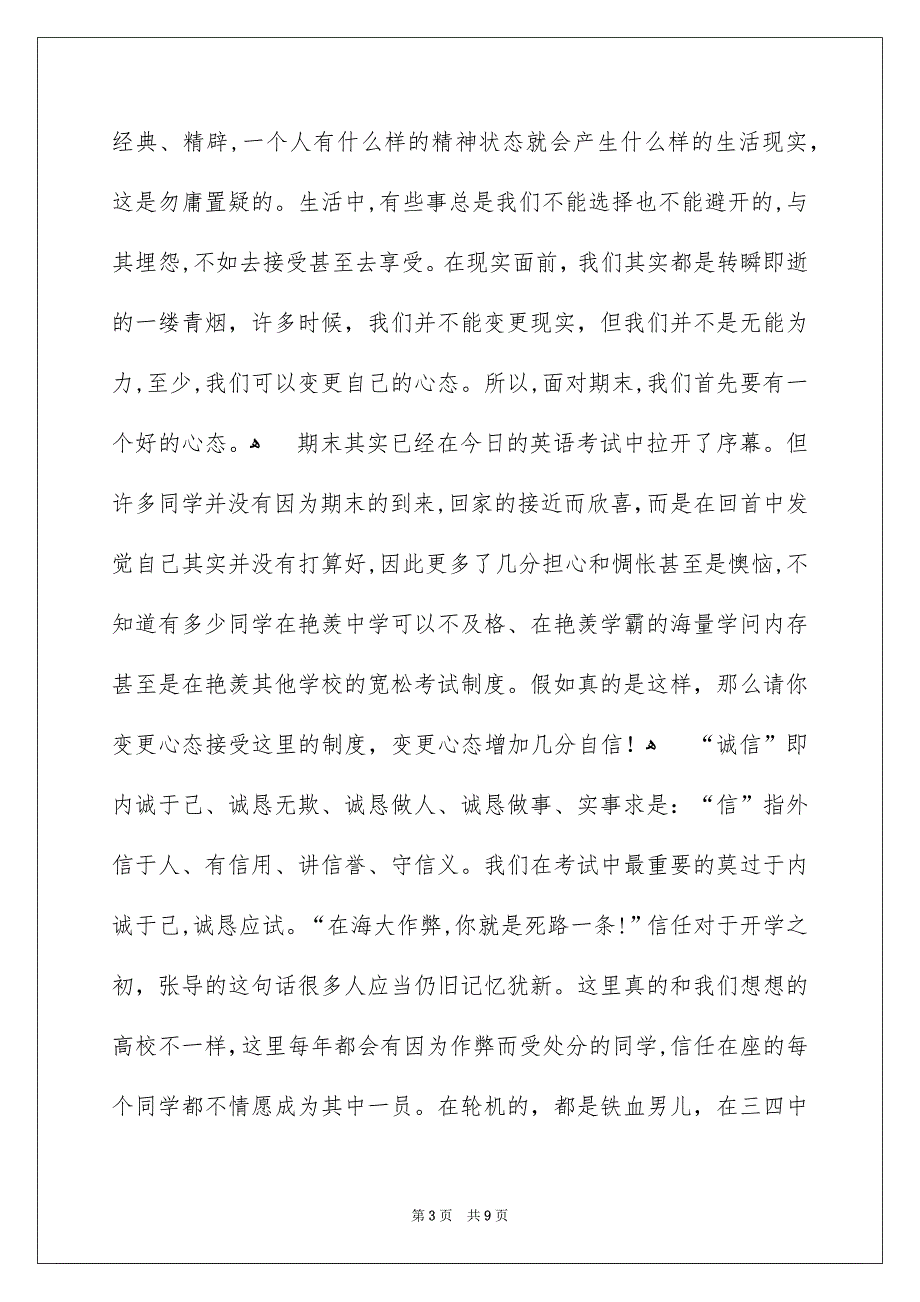 经典、精辟,一个人有什么样的精神状态就会产生什么样的生活现实,
这是勿庸置疑的。生活中,有些事总是我们不能选择也不能避开的,与
其埋怨,不如去接受甚至去享受。在现实面前，我们其实都是转瞬即逝
的一缕青烟，许多时候，我们并不能变更现实，但我们并不是无能为
力,至少,我们可以变更自己的心态。所以,面对期末,我们首先要有一
个好的心态。ﻫ 期末其实已经在今日的英语考试中拉开了序幕。但
许多同学并没有因为期末的到来,回家的接近而欣喜,而是在回首中发
觉自己其实并没有打算好,因此更多了几分担心和惆怅甚至是懊恼,不
知道有多少同学在艳羡中学可以不及格、在艳羡学霸的海量学问内存
甚至是在艳羡其他学校的宽松考试制度。假如真的是这样，那么请你
变更心态接受这里的制度，变更心态增加几分自信！ﻫ “诚信”即
内诚于己、诚恳无欺、诚恳做人、诚恳做事、实事求是：“信”指外
信于人、有信用、讲信誉、守信义。我们在考试中最重要的莫过于内
诚于己,诚恳应试。“在海大作弊,你就是死路一条!”信任对于开学之
初，张导的这句话很多人应当仍旧记忆犹新。这里真的和我们想想的
高校不一样,这里每年都会有因为作弊而受处分的同学,信任在座的每
个同学都不情愿成为其中一员。在轮机的，都是铁血男儿，在三四中
第 3 页 共 9 页